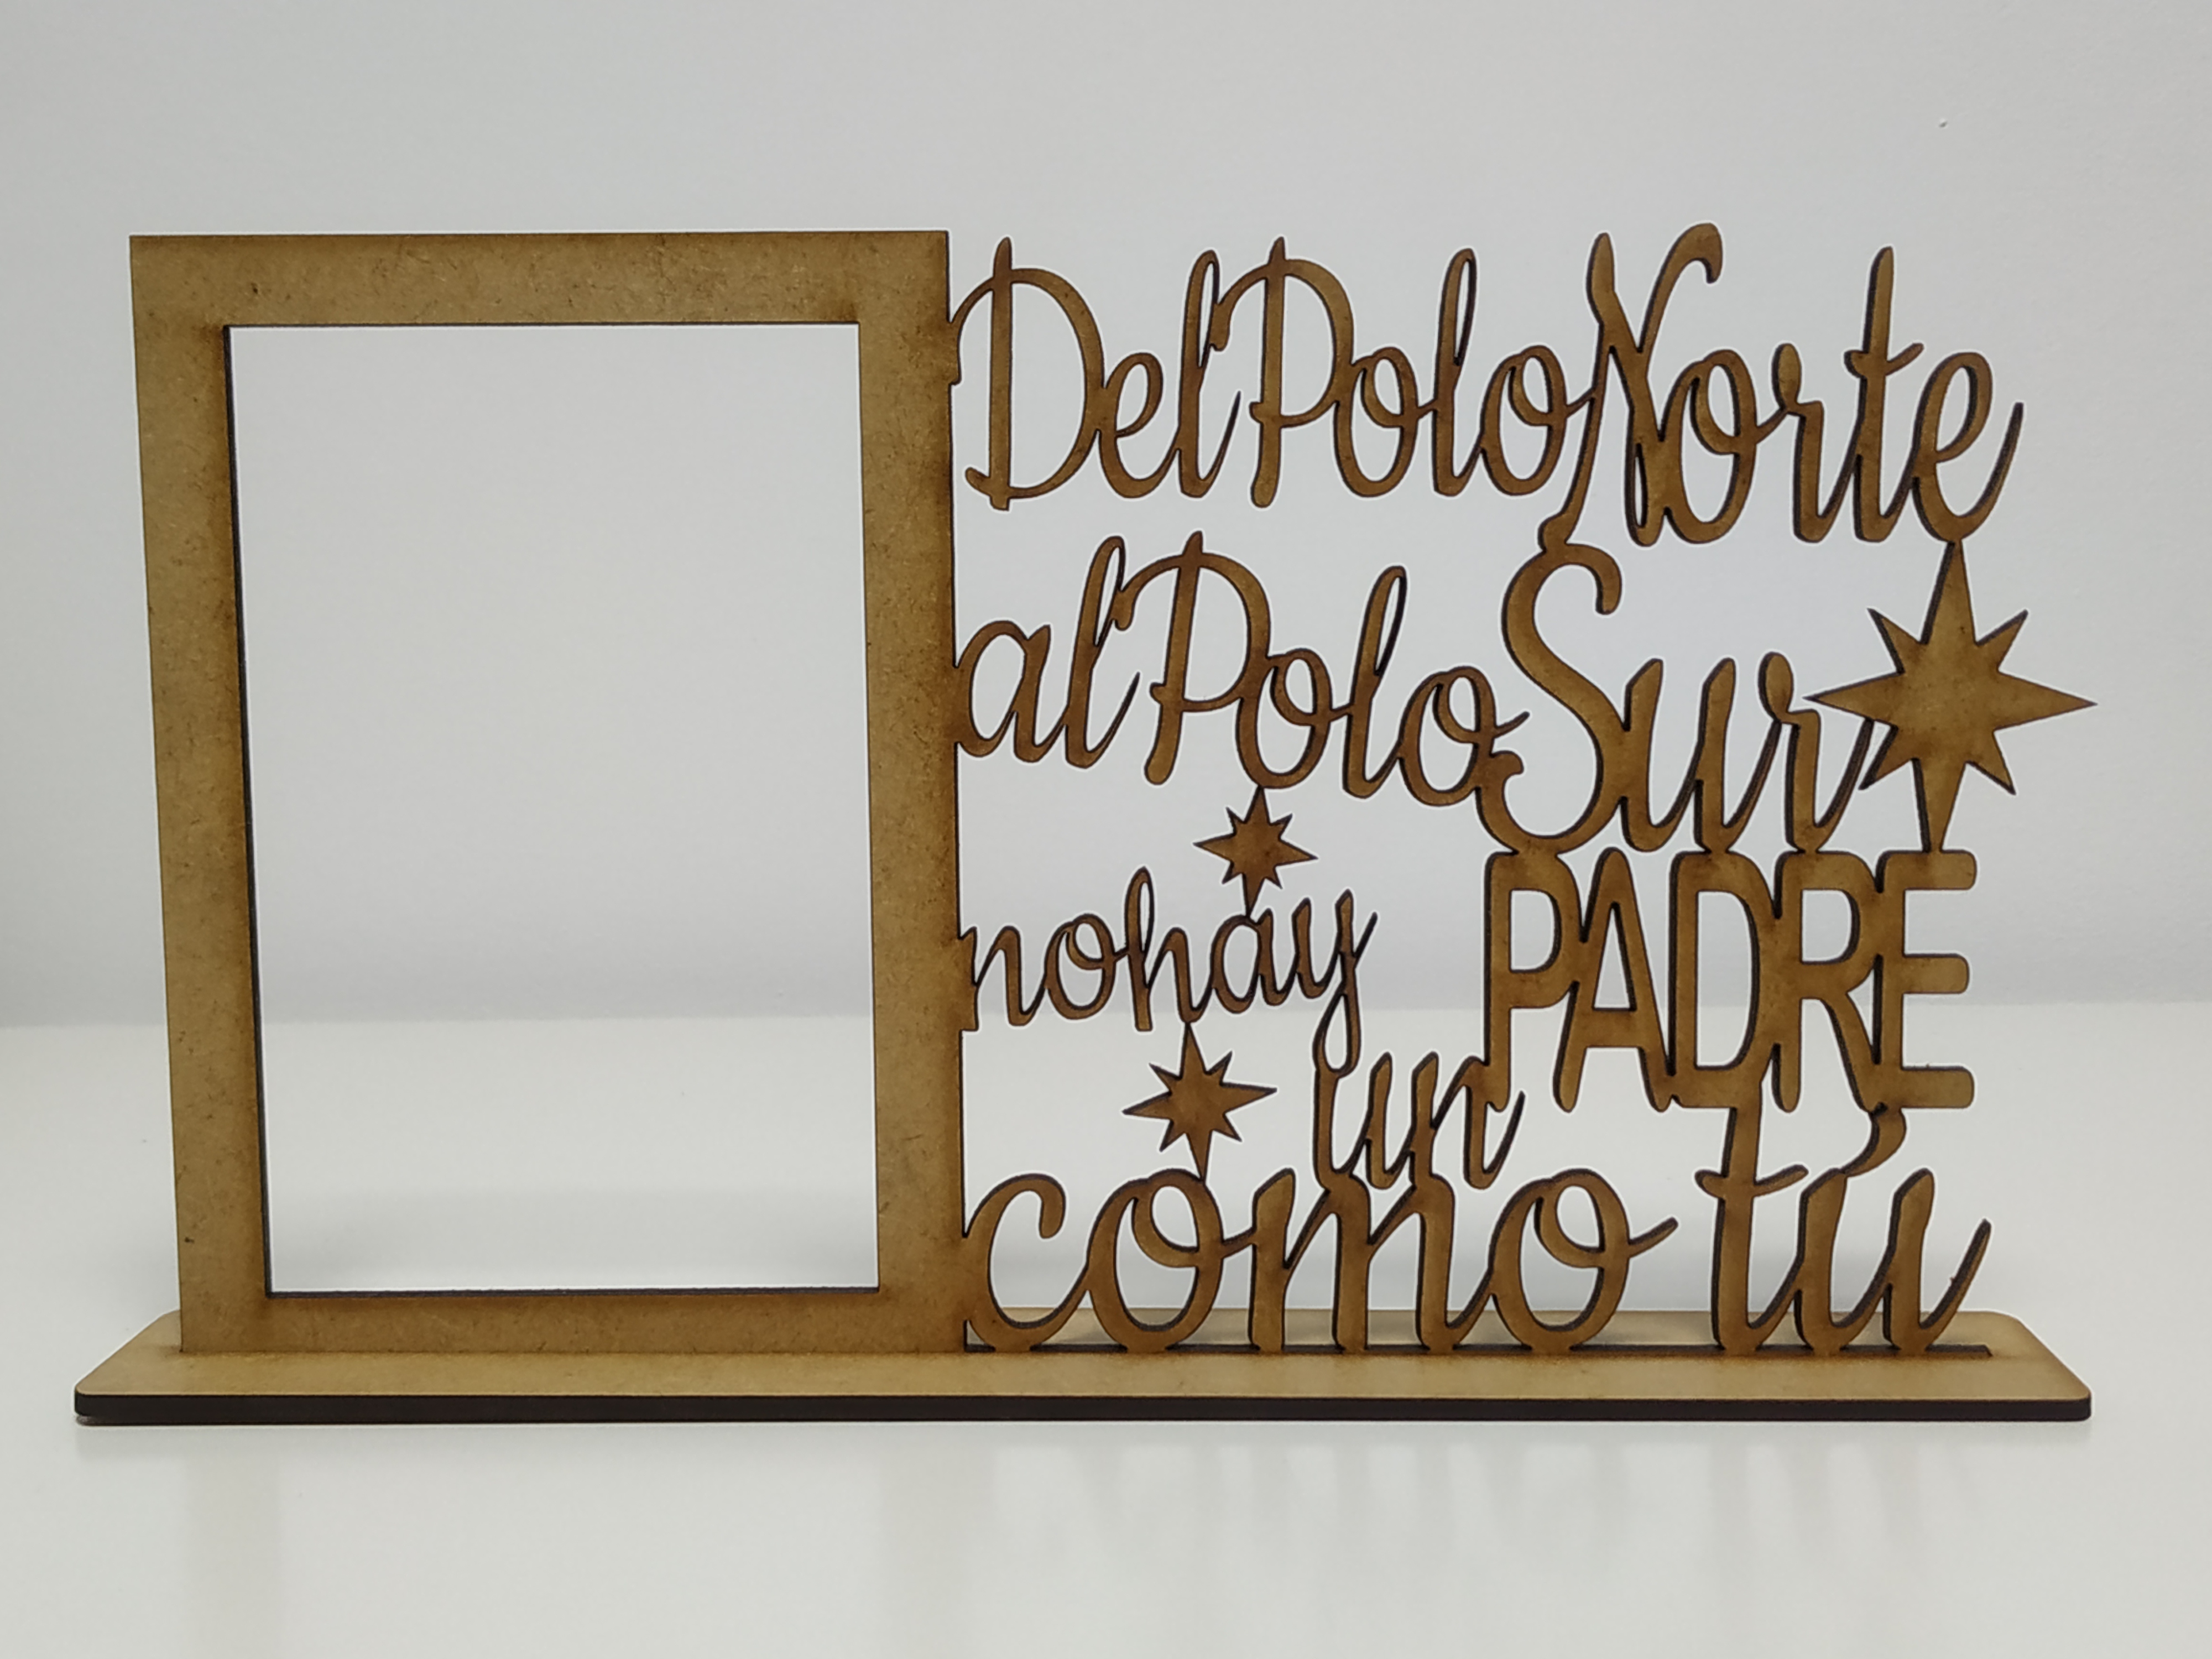 Del Polo Norte
al Polo Sur
no hay
un PADRE
como tú